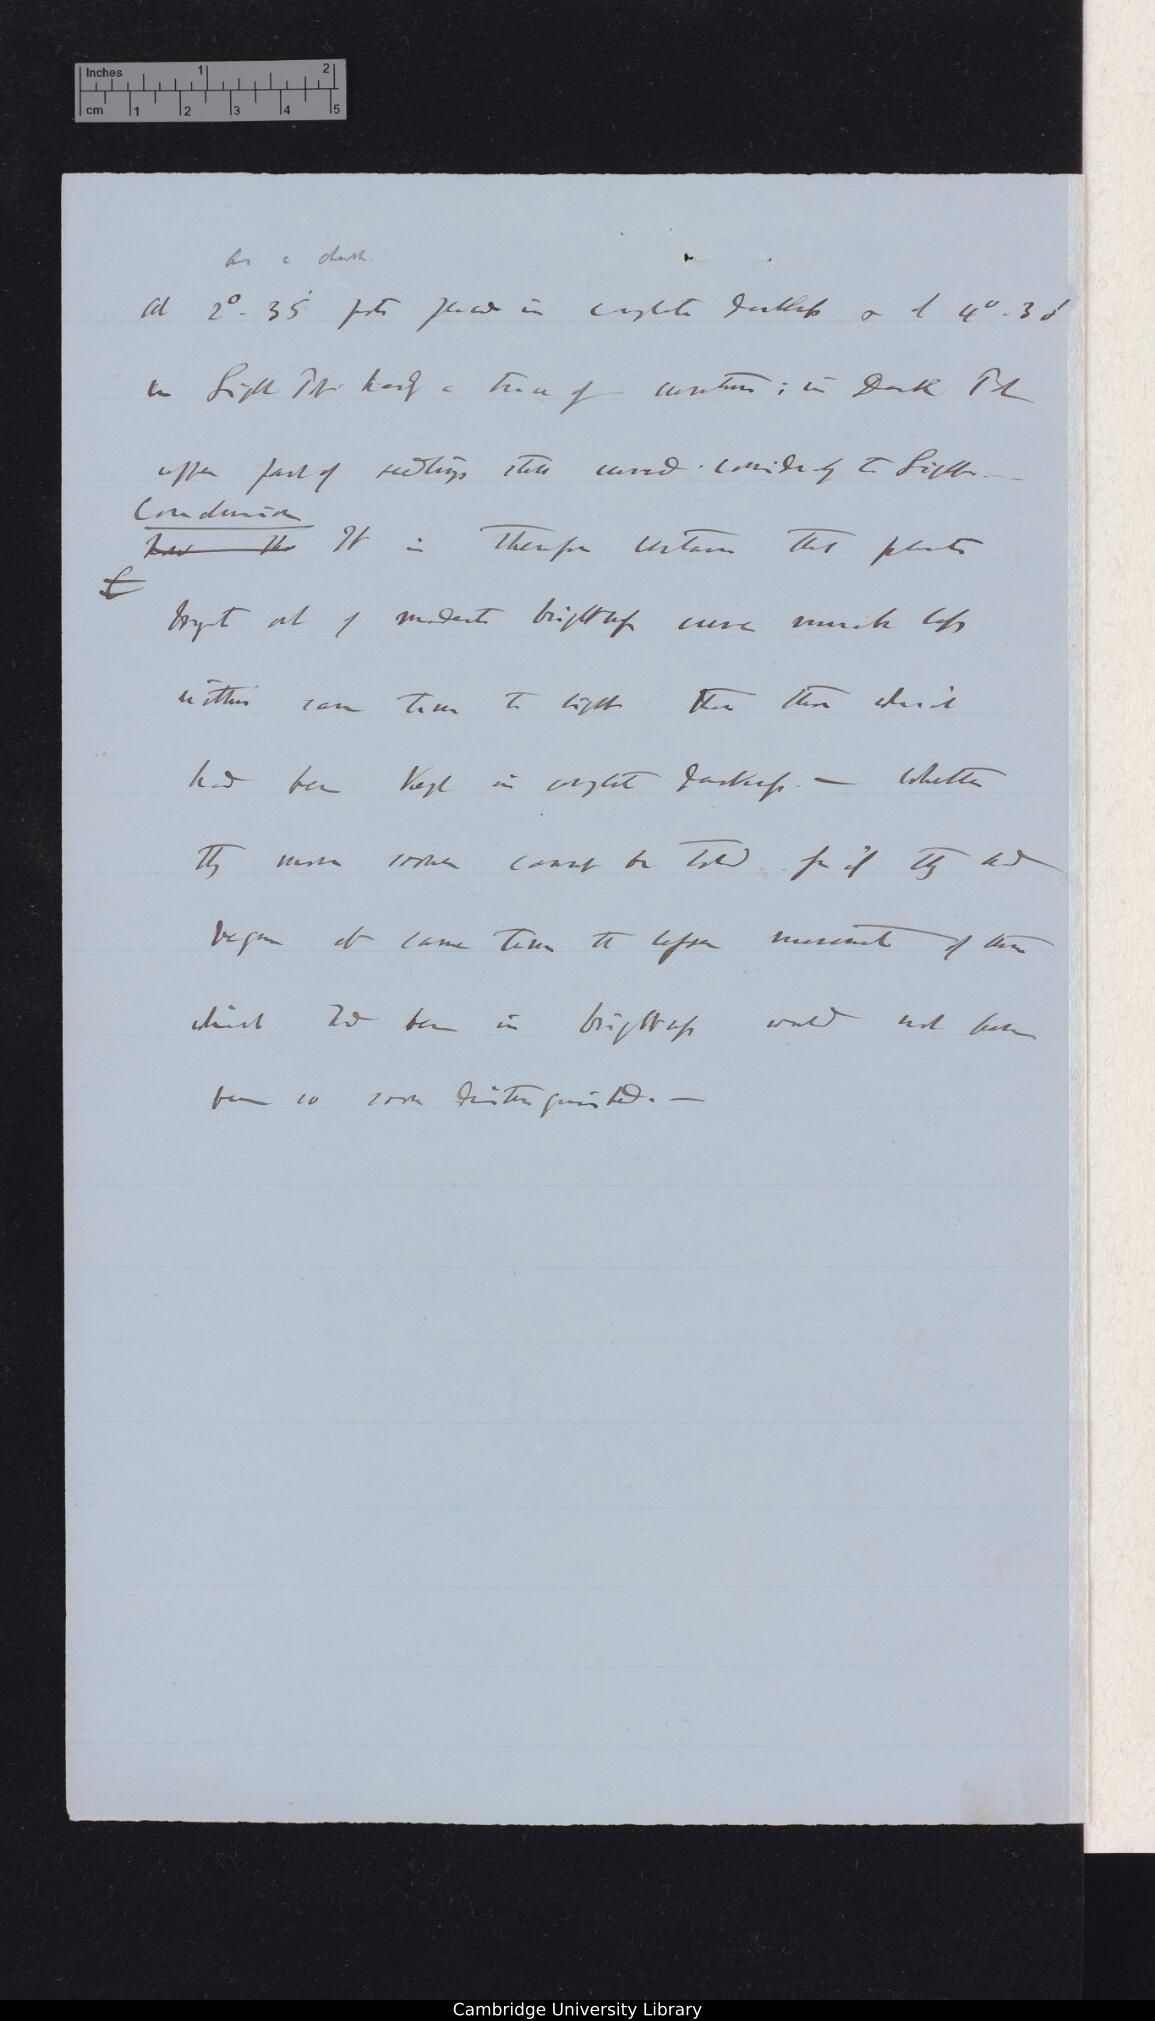 Inches 1 2
cm 1 2 3 4 5
as a check
At 2° 35' pots placed in complete darkness & at 4° 38'
in Light Pot hardly a trace of curvature; in Dark Pot
upper part of seedlings still curved considerably to Light.—
Conclusion
It is therefore certain that plants
brought out of moderate brightness curve much less
within same time to light than those which
had been kept in complete darkness.— Whether
they move sooner cannot be told for if they had
began at same time the lesser movement of those
which had been in brightness would not have
been so soon distinguished.—
Cambridge University Library